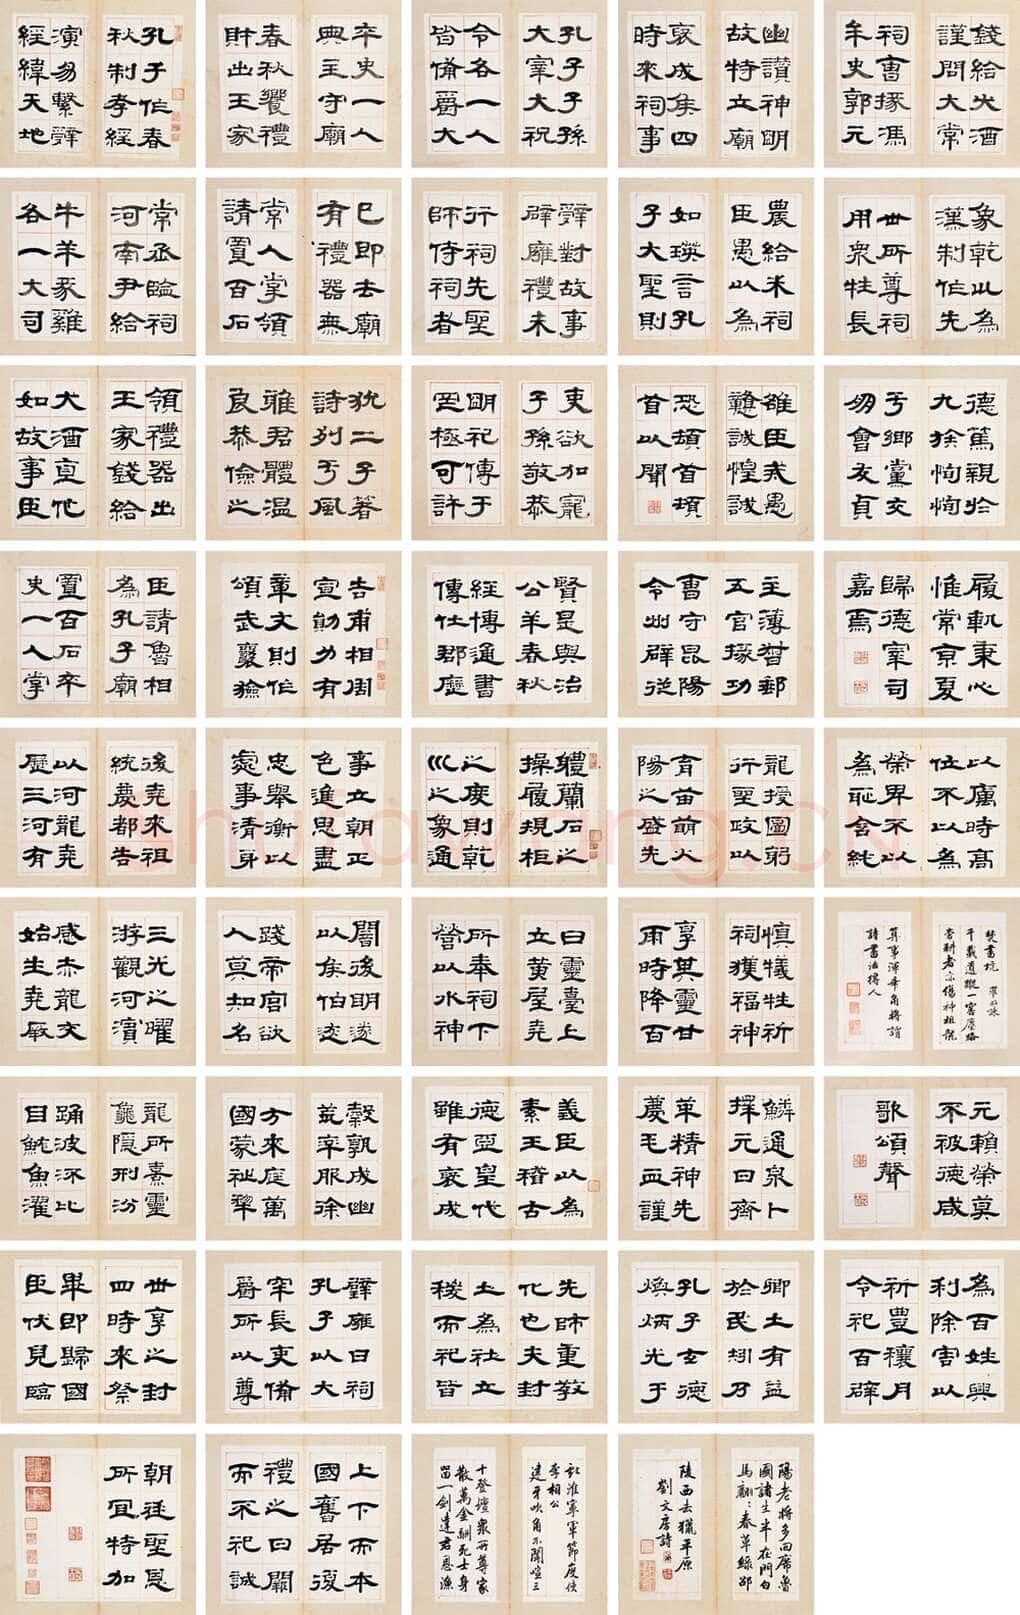 孔子作春
秋制孝經
演易繫辭
經緯天地
卒史一人
典主守廟
春秋饗禮
財出王家
孔子子孫
大宰大祝
令各一人
皆備爵大
幽讚神明
故特立廟
裒成侯四
時來祠事
錢給犬酒
謹問大常
祠曹掾馮
牟史郭元
常丞臨祠
河南尹給
牛羊豕雞
各一大司
已即去廟
有禮器無
常人掌領
請置百石
辭對故事
辟廱禮未
行祠先聖
師侍祠者
農給米祠
臣愚以為
如瑛言孔
子大聖則
象乾川為
漢制作先
世所尊祠
用眾牲長
領禮器出
王家錢給
犬酒直他
如故事臣
犹二子著
詩列于風
雅君體温
良恭儉之
吏欲加寵
子孫敬恭
明祀傳于
罔極可許
雄臣戒愚
戇誠惶誠
恐頓首頓
首以聞
德篤親於
九族恂恂
于鄉黨交
朋會友貞
臣請魯相
為孔子廟
置百石卒
史一人掌
吉甫相周
宣勛力有
章文則作
頌武襄獫
賢是與治
公羊春秋
經博通書
傳仕郡歷
主簿督郵
五官掾功
曹守昆陽
令州辟從
履軌秉心
惟常京夏
歸德宰司
嘉焉
後堯來祖
統慶都告
以河龍堯
歷三河有
事立朝正
色進思盡
忠舉衡以
處事清身
體蘭石之
操履規柜
之度則乾
巛之象通
龍授圖躬
行聖政以
育苗萌火
陽之盛先
以厲時高
位不以為
榮卑不以
為恥含純
三光之曜
游觀河濱
感赤龍交
始生堯厥
闇後明遂
以侯伯恣
踐帝宮欲
人莫知名
曰靈臺上
立黃屋堯
所奉祠下
營以水神
慎犧牲祈
祠獲福神
享其靈甘
雨時降百
焚書坑
千載遺蹤一窖塵路
旁耕者亦傷神祖龍
算事渾乖角將謂
詩書活得人
龍所熹靈
龜隱刑汾
踊波沠比
目鱿魚濯
穀孰成幽
荒率服徐
方來庭萬
國蒙祉黎
義臣以為
素王稽古
德亞皇代
雖有裒成
鱗通泉卜
擇元日齋
革精神先
薦毛血謹
元賴榮莫
不被德咸
歌頌聲
世享之封
四時來祭
畢即歸國
臣伏見臨
璧廱日祠
孔子以大
宰長吏備
爵所以尊
先師重教
化也夫封
土為社立
稷而祀皆
卿士有益
於民矧乃
孔子玄德
煥炳光于
為百姓興
利除害以
祈豐穰月
令祀百辟
朝廷聖恩
所宜特加
上下而本
國舊居復
禮之日闕
而不祀誠
獻淮寧軍節度使
李相公
建牙吹角不聞喧三
十登壇眾所尊家
散萬金酬死士身
留一劍達君恩漁
陽老將多回席魯
國諸生半在門白
馬翩:春草綠邵
陵西去獵平原
劉文房詩
shufawang.cn